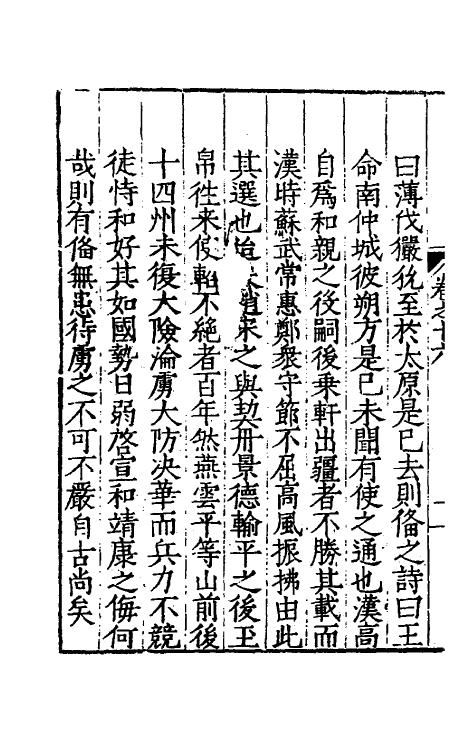 曰薄伐玁狁至於太原是已去則俻之詩曰王
命南仲城彼朔方是已未聞有使之通也漢高
自爲和親之後嗣後乗軒出疆者不勝其載而
漢時蘇武常惠鄭衆守節不屈高風振拂由此
其選也迨宋之與契丹景德輸平之後玉
帛徃来使軺不絶者百年然燕雲平等山前後
十四州未復大險淪虜大防决華而兵力不競
徒恃和好其如國勢日弱啓宣和靖康之侮何
㢤則有俻無患待虜之不可不嚴自古尚矣
卷之十六